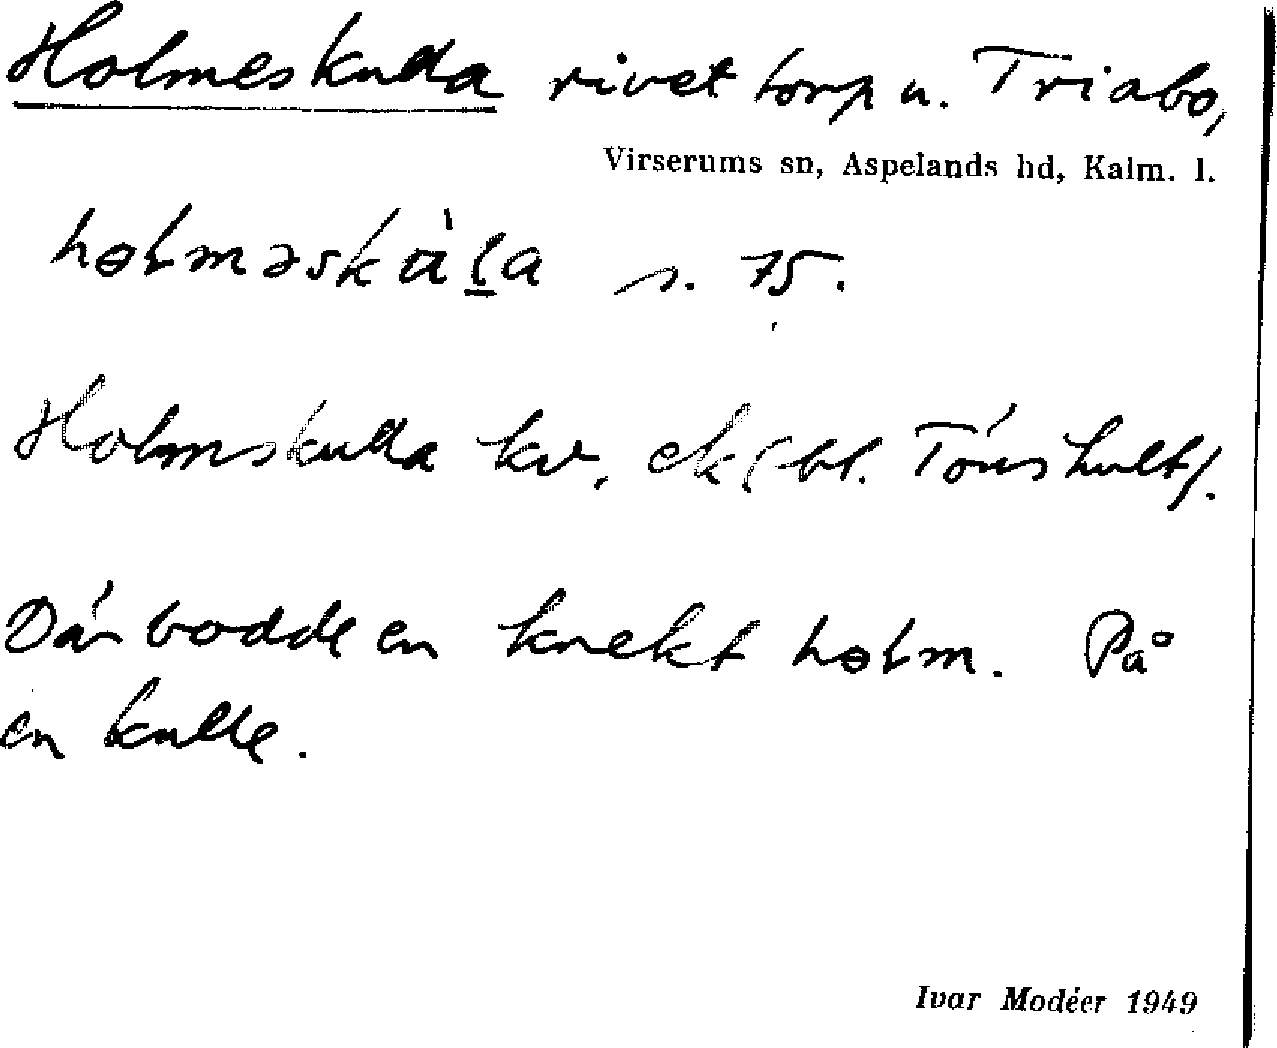 Holmeskulla rivet torp u. Triabo,
Virserums sn, Aspelands hd, Kalm. l.
s. 75.
Holmskulla kv, ek (bl.
Där bodde en knekt holm. På
en kulle.
Ivar Modéer 1949